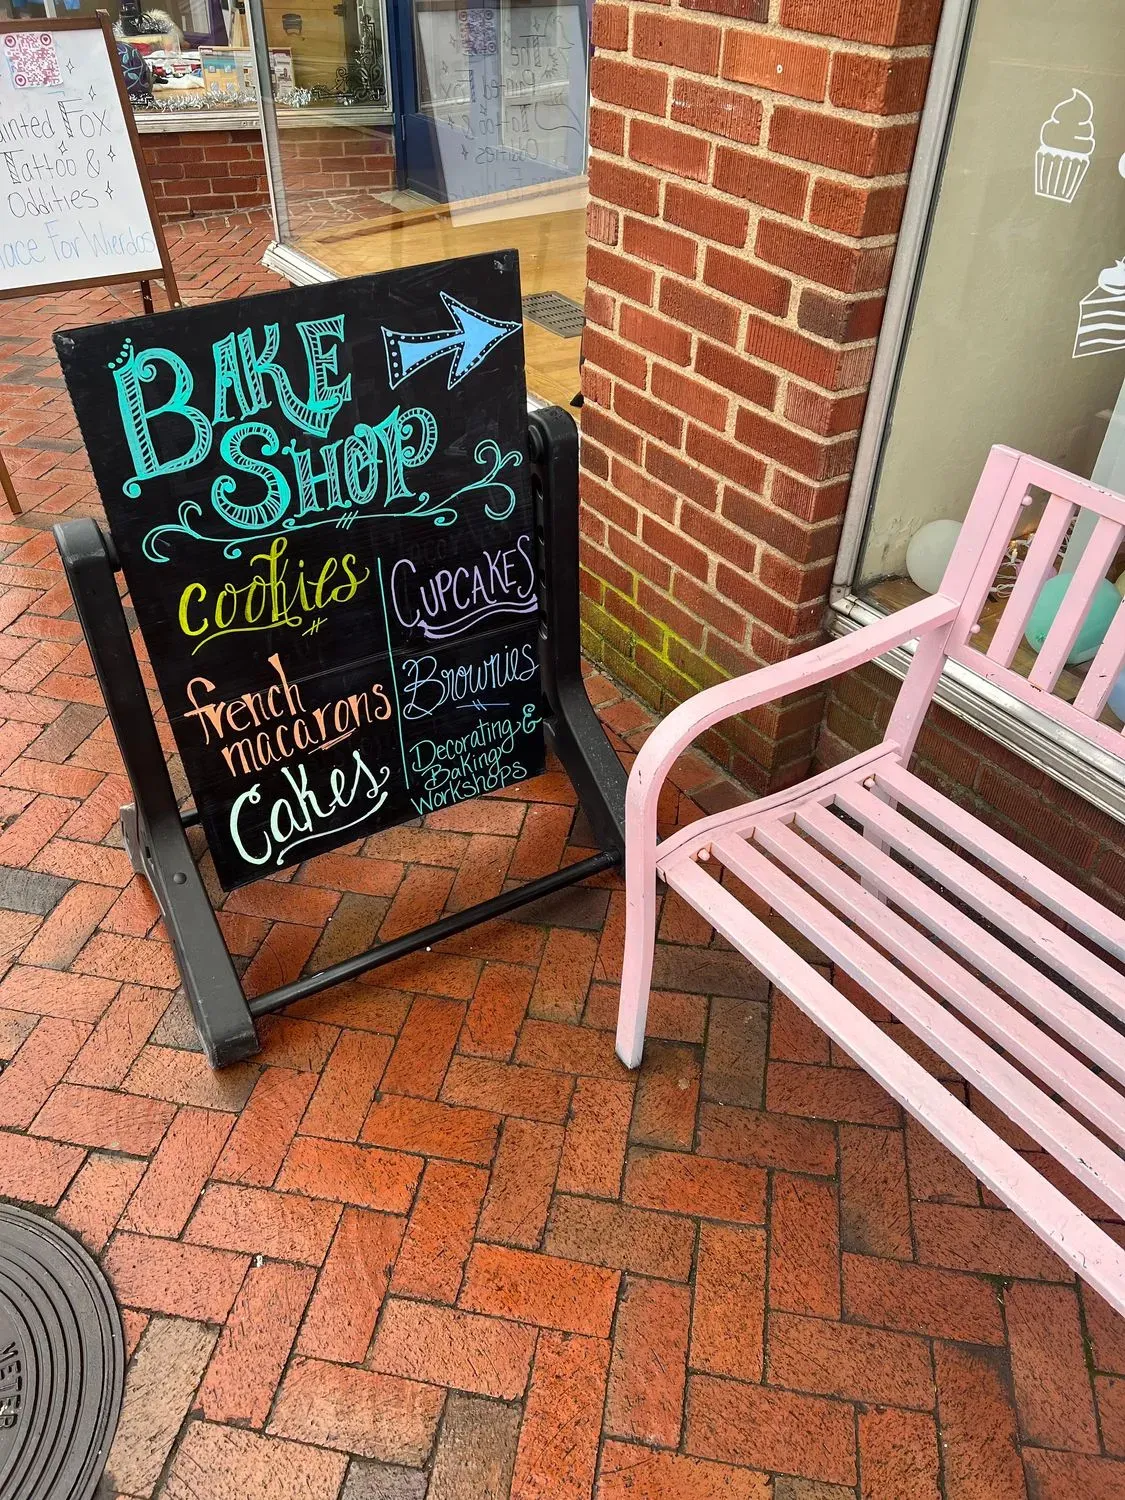 Fox
Tattoo &
Oddities
For Wierdos
BAKE
SHOP
cookies
french
macarons
Cakes
CUPCAKES
Brownies
Decorating &
Baking
Workshops
METER